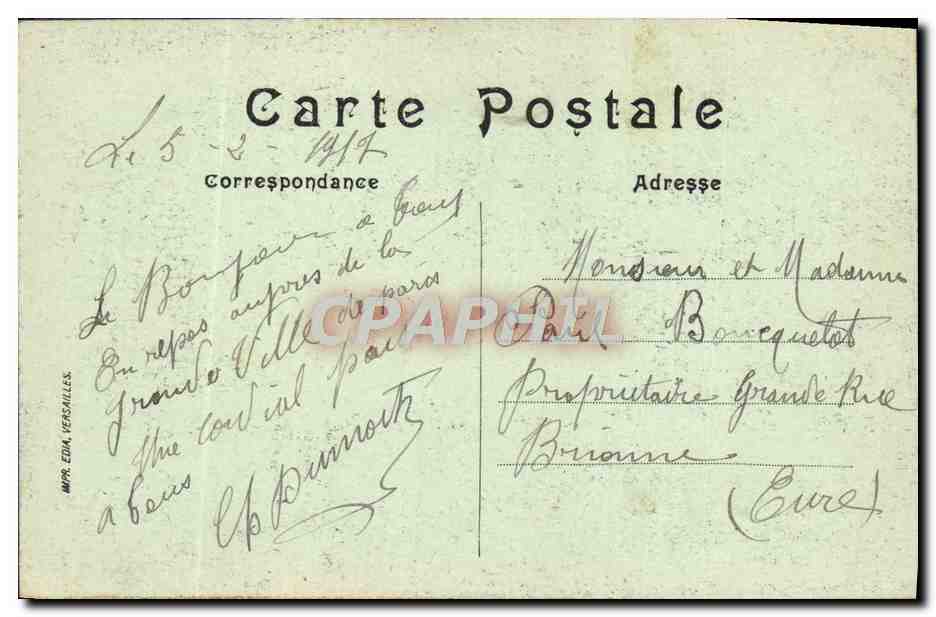 Carte Postale
Le 5 - 2 - 1917
Correspondance
Le Bonjour a tous
En repos aupres de la
grande Ville de paris
Une cordial
a tous
Ch Dumont
Adresse
Monsieur et Madame
Paul Boucquelot
Propriétaire Grande Rue
Brionne
(Eure)
IMPR. EDIA, VERSAILLES.
CPAPHIL